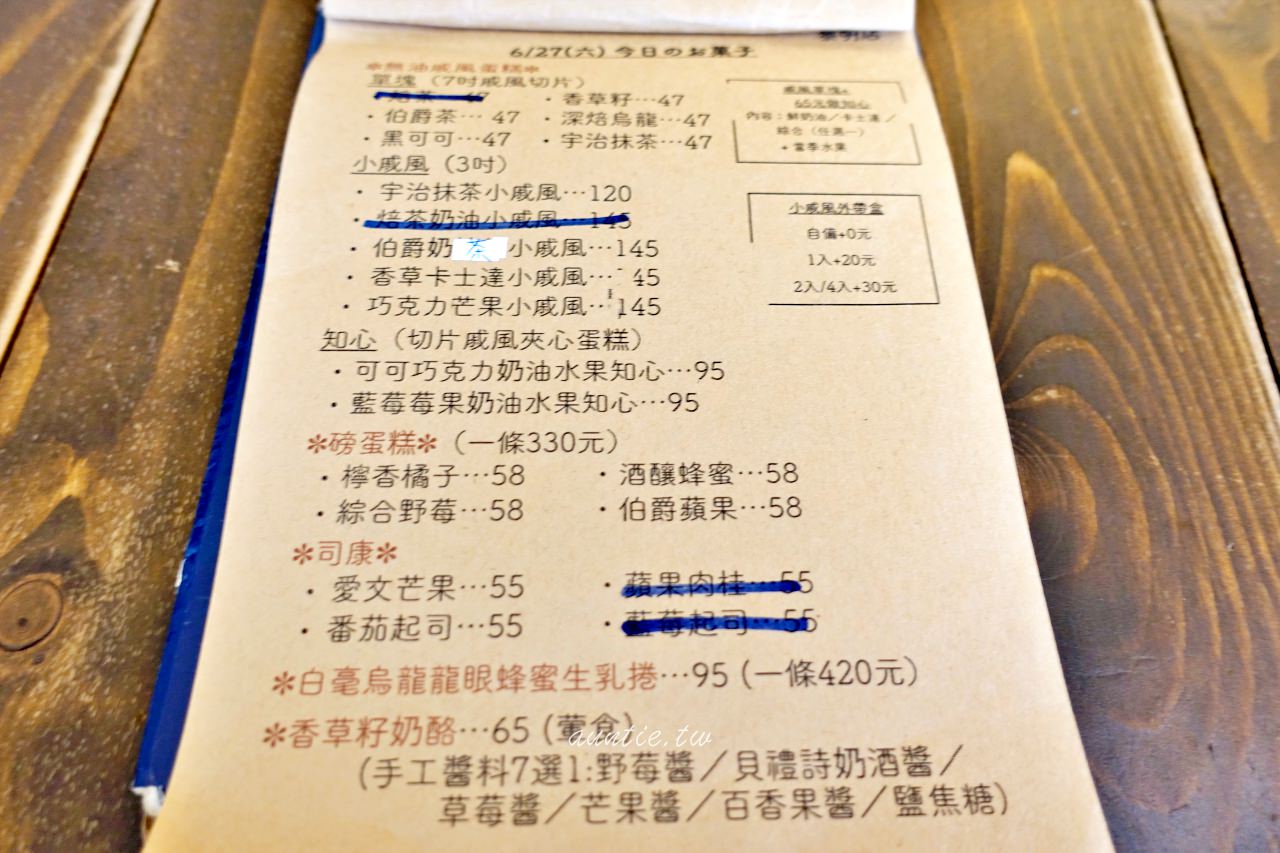 6/27(六) 今日のお菓子
*無油戚風蛋糕*
單塊（7吋戚風切片）
・焙茶…47 ・香草籽…47
・伯爵茶…47 ・深焙烏龍…47
・黑可可…47 ・宇治抹茶…47
小戚風（3吋）
・宇治抹茶小戚風…120
・焙茶奶油小戚風…145
・伯爵奶茶小戚風…145
・香草卡士達小戚風…45
・巧克力芒果小戚風…145
知心（切片戚風夾心蛋糕）
・可可巧克力奶油水果知心…95
・藍莓莓果奶油水果知心…95
*磅蛋糕*（一條330元）
・檸香橘子…58 ・酒釀蜂蜜…58
・綜合野莓…58 ・伯爵蘋果…58
*司康*
・愛文芒果…55 ・蘋果肉桂…55
・番茄起司…55 ・藍莓起司…55
*白毫烏龍龍眼蜂蜜生乳捲…95 (一條420元)
*香草籽奶酪…65 (葷食)
(手工醬料7選1:野莓醬／貝禮詩奶酒醬／
草莓醬／芒果醬／百香果醬／鹽焦糖)
戚風單塊+
65元做知心
內容：鮮奶油／卡士達／
綜合（任選一）
+當季水果
小戚風外帶盒
自備+0元
1入+20元
2入/4入+30元
auntie.tw